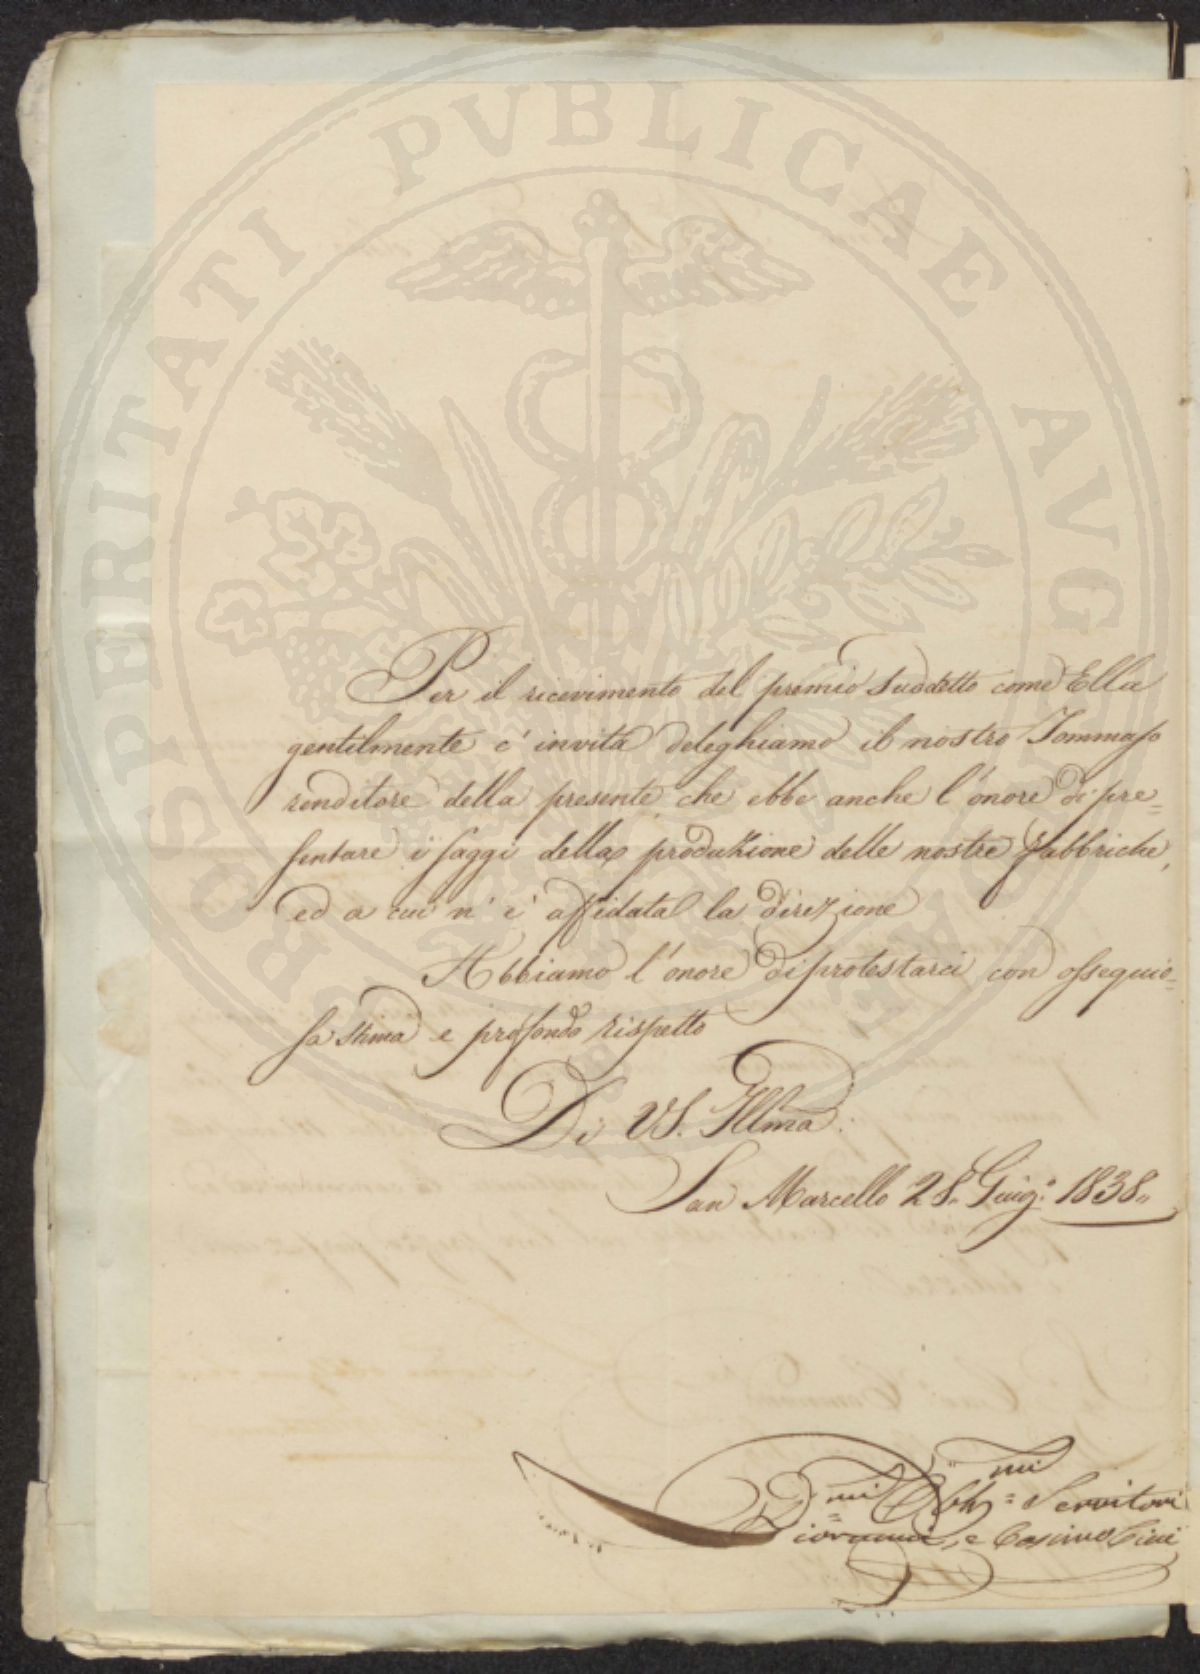 Per il ricevimento del premio suddetto come Ella
gentilmente c'invita deleghiamo il nostro Tommaso
renditore della presente che ebbe anche l'onore di pre=
sentare i saggi della produzione delle nostre fabbriche,
ed a cui n'è affidata la direzione
Abbiamo l'onore di protestarci con ossequio=
sa stima e profondo rispetto
Di VS. Illma:
San Marcello 28. Giug.° 1838.
D=mi Obb=mi Servitori
Giovanni, e Cosimo Cini
PROSPERITATI PVBLICAE AVG